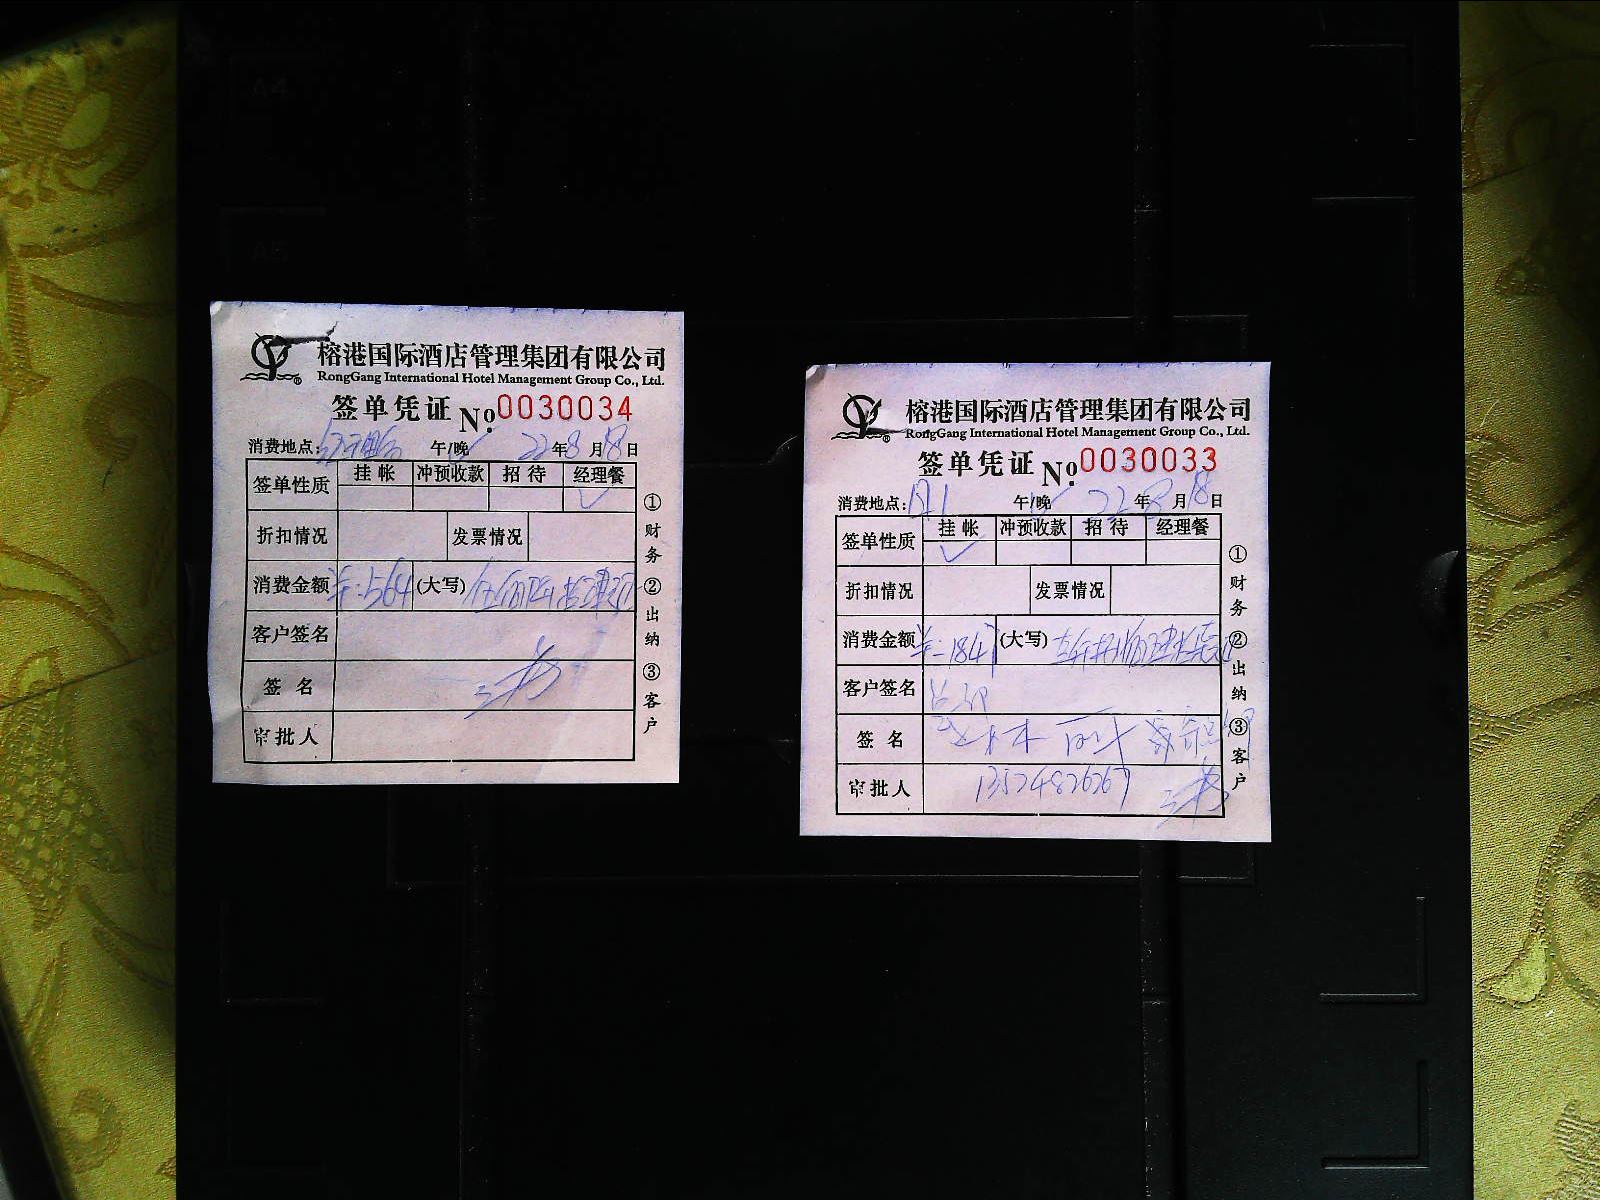 榕港国际酒店管理集团有限公司
RongGang International Hotel Management Group Co., Ltd.
签单凭证 No. 0030034
消费地点: 午/晚 22年8月18日
签单性质 挂帐 冲预收款 招待 经理餐
折扣情况 发票情况
消费金额 ¥:564 (大写)
客户签名
签名
审批人
①财务 ②出纳 ③客户
榕港国际酒店管理集团有限公司
RongGang International Hotel Management Group Co., Ltd.
签单凭证 No. 0030033
消费地点: 午/晚 22年8月18日
签单性质 挂帐 冲预收款 招待 经理餐
折扣情况 发票情况
消费金额 (大写)
客户签名
签名
审批人 13574826267
①财务 ②出纳 ③客户